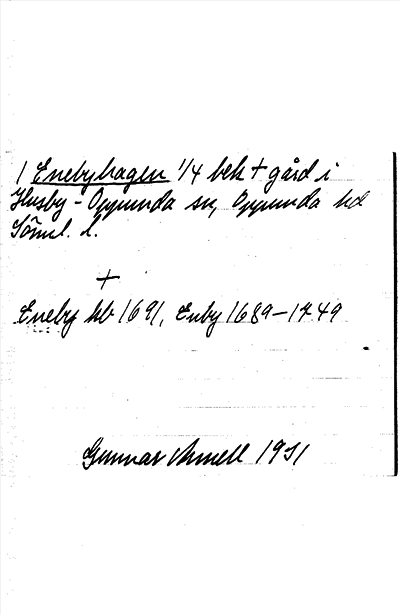 / Enebyhagen 1/4 bek + gård i
Husby-Oppunda sn, Oppunda hd
Söml. l.
+
Eneby hb 1691, Enby 1689–1749
Gunnar Arnell 1931